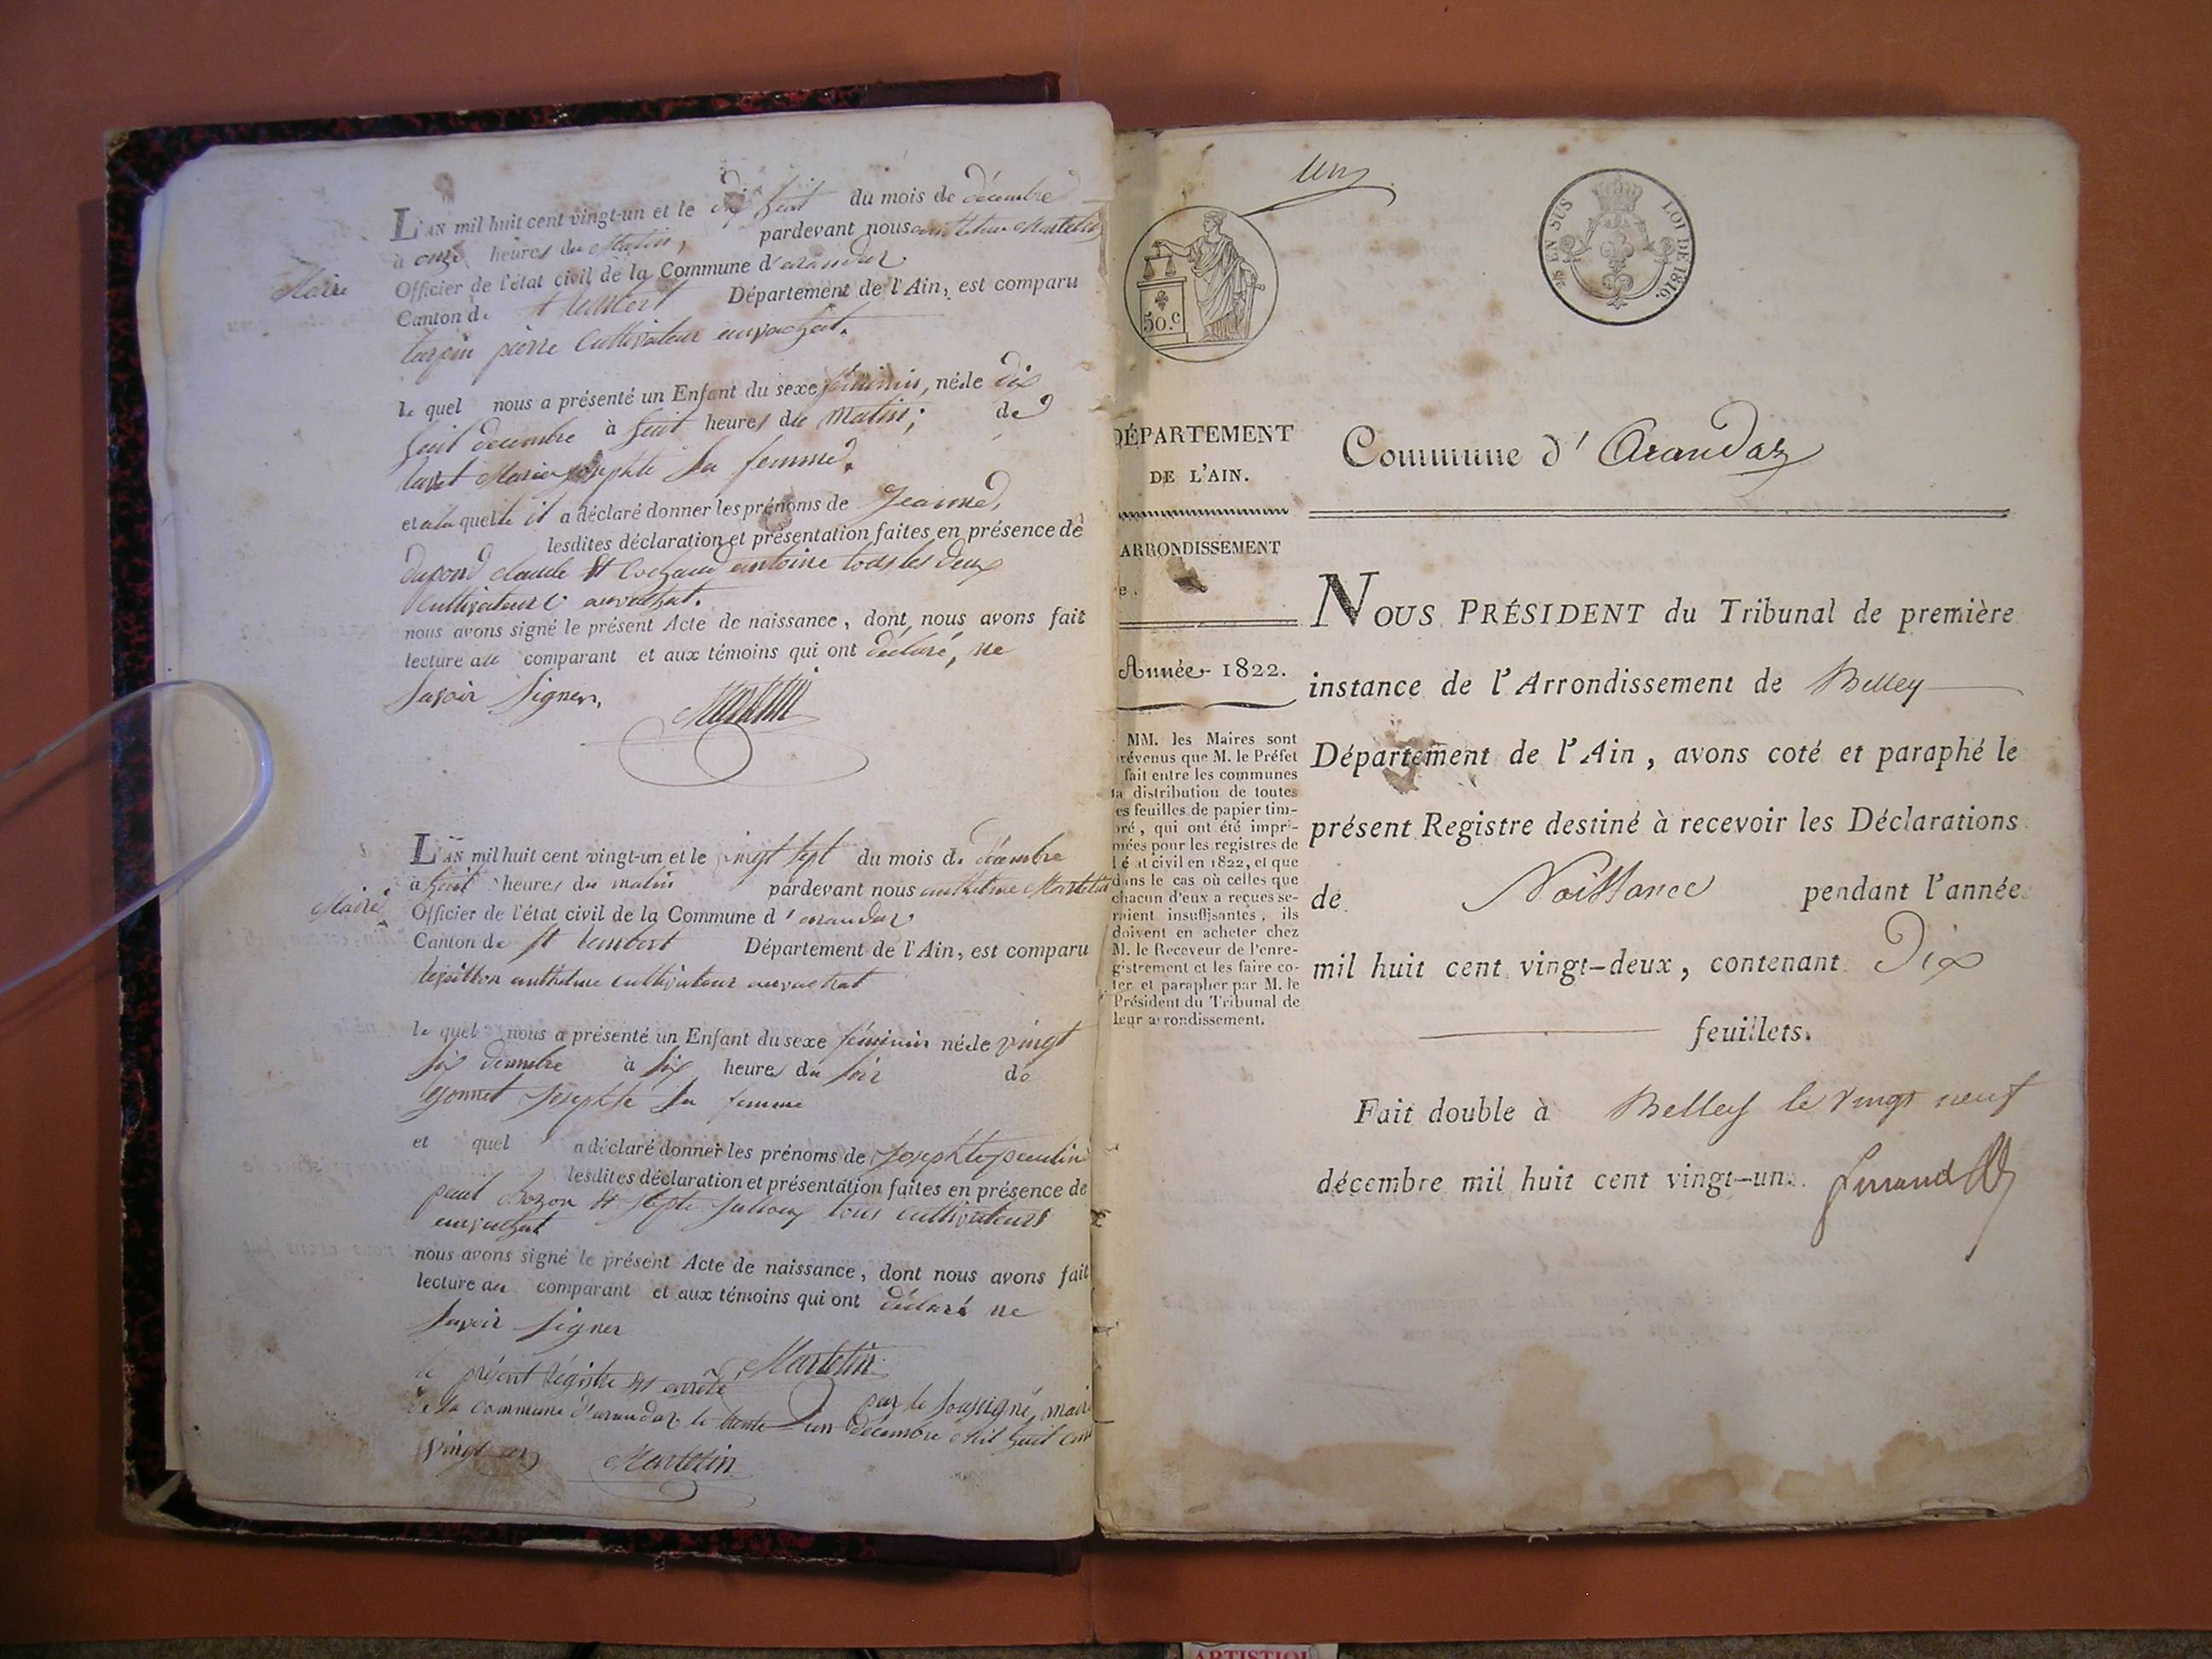 L'AN mil huit cent vingt-un et le dix huit du mois de décembre
à onze heures du Matin, pardevant nous anthelme Martelin
Maire Officier de l'état civil de la Commune d'arandas
Canton de st Lambert Département de l'Ain, est comparu
pierre Cultivateur
le quel nous a présenté un Enfant du sexe féminin, née le dix
huit decembre à huit heures du Matin; de
Marie josephte sa femme.
et a la quelle il a déclaré donner les prénoms de Jeanne,
lesdites déclaration et présentation faites en présence de
dupond claude et antoine tous les deux
Cultivateurs
nous avons signé le présent Acte de naissance, dont nous avons fait
lecture au comparant et aux témoins qui ont déclaré, ne
savoir signer,
Martelin
L'AN mil huit cent vingt-un et le vingt sept du mois de décembre
à huit heures du matin pardevant nous anthelme Martelin
Maire Officier de l'état civil de la Commune d'arandas
Canton de st Lambert Département de l'Ain, est comparu
anthelme cultivateur
le quel nous a présenté un Enfant du sexe féminin née le vingt
six decembre à six heures du soir de
josephte sa femme
et quel a déclaré donner les prénoms de josephte
lesdites déclaration et présentation faites en présence de
paul et tous cultivateurs
nous avons signé le présent Acte de naissance, dont nous avons fait
lecture au comparant et aux témoins qui ont déclaré ne
savoir signer
Martelin
le présent Régistre est arrêté par le soussigné, maire
de la Commune d'arandas le trente un décembre mil huit cent
vingt un Martelin
un
50.c
EN SUS
LOI DE 1816.
DÉPARTEMENT
DE L'AIN.
Commune d'Arandas
ARRONDISSEMENT
Année 1822.
MM. les Maires sont
prévenus que M. le Préfet
fait entre les communes
la distribution de toutes
les feuilles de papier tim-
bré, qui ont été impri-
mées pour les registres de
l'état civil en 1822, et que
dans le cas où celles que
chacun d'eux a reçues se-
raient insuffisantes, ils
doivent en acheter chez
M. le Receveur de l'enre-
gistrement et les faire co-
ter et parapher par M. le
Président du Tribunal de
leur arrondissement.
NOUS PRÉSIDENT du Tribunal de première
instance de l'Arrondissement de Belley
Département de l'Ain, avons coté et paraphé le
présent Registre destiné à recevoir les Déclarations
de Naissance pendant l'année
mil huit cent vingt-deux, contenant Dix
feuillets.
Fait double à Belley le vingt neuf
décembre mil huit cent vingt-un.